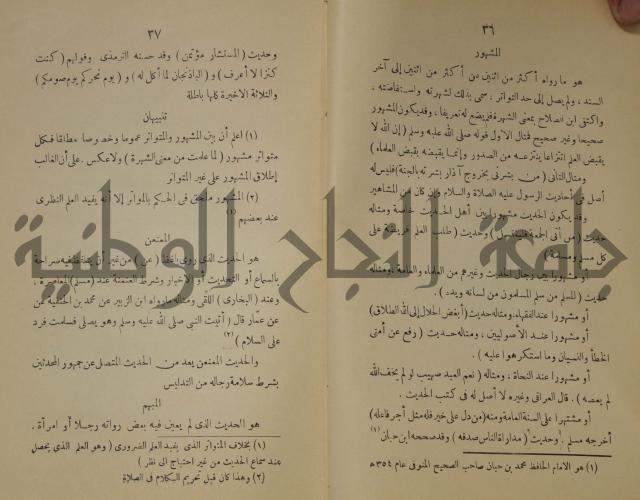 ٣٦
المشهور
هو مارواه أكثر من اثنين عن أكثر من اثنين إلى آخر
السند، ولم يصل إلى حد التواتر، سمى بذلك لشهرته واستفاضته،
واكتفى ابن الصلاح بمعنى الشهرة فلم يضع له تعريفا، وقد يكون المشهور
صحيحا وغير صحيح فمثال الأول قوله صلى الله عليه وسلم (إن الله لا
يقبض العلم انتزاعا ينتزعه من الصدور وإنما يقبضه بقبض العلماء)
ومثال الثانى (من بشرنى بخروج آذار بشرته بالجنة) فليس له
أصل فى أحاديث الرسول عليه الصلاة والسلام وإن كان من المشاهير
وقد يكون الحديث مشهورا بين أهل الحديث خاصة ومثاله
حديث (من أتى الجمعة فليغتسل) وحديث (طلب العلم فريضة على
كل مسلم ومسلمة)
أو مشهورا بين رجال الحديث وغيرهم من العلماء والعامة، ومثاله
حديث (المسلم من سلم المسلمون من لسانه ويده).
أو مشهورا عند الفقهاء، ومثاله حديث (أبغض الحلال إلى الله الطلاق)
أو مشهورا عند الأصوليين، ومثاله حديث (رفع عن أمتى
الخطأ والنسيان وما استكرهوا عليه).
أو مشهورا عند النحاة، ومثاله (نعم العبد صهيب لو لم يخف الله
لم يعصه). قال العراقى وغيره لا أصل له فى كتب الحديث.
أو مشتهرا على السنة العامة ومنه (من دل على خير فله مثل أجر فاعله)
أخرجه مسلم. وحديث (مداراة الناس صدقة) وقد صححه ابن حبان (١)
(١) هو الامام الحافظ محمد بن حبان صاحب الصحيح المتوفى عام ٣٥٤ ه
٣٧
وحديث (المستشار مؤتمن) وقد حسنه الترمذى وقولهم (كنت
كنزا لا أعرف) و (الباذنجان لما أكل له) و (يوم نحركم يوم صومكم)
والثلاثة الاخيرة كلها باطلة
تنبيهان
(١) اعلم أن بين المشهور والمتواتر عموما وخصوصا مطلقا فكل
متواتر مشهور (لما علمت من معنى الشهرة) ولا عكس. على أن الغالب
إطلاق المشهور على غير المتواتر
(٢) المشهور ملحق فى الحكم بالمتواتر إلا أنه يفيد العلم النظرى
عند بعضهم (١)
المعنعن
هو الحديث الذى روى بلفظ (عن) من غير أن يتلفظ فيه صراحة
بالسماع أو التحديث أو الاخبار وشرط العنعنة عند (مسلم) المعاصرة،
وعند (البخارى) اللقى ومثاله مارواه ابن الزبير عن محمد بن الحنفية عن
عن عمّار قال (أتيت النبى صلى الله عليه وسلم وهو يصلى فسلمت فرد
على السلام) (٢)
والحديث المعنعن يعد من الحديث المتصل عن جمهور المحدثين
بشرط سلامة رجاله من التدليس
المبهم
هو الحديث الذى لم يعين فيه بعض رواته رجلا أو امرأة.
(١) بخلاف المتواتر الذى يفيد العلم الضرورى (وهو العلم الذى يحصل
عند سماع الحديث من غير احتياج الى نظر)
(٢) وهذا كان قبل تحريم الكلام فى الصلاة
جامعة النجاح الوطنية